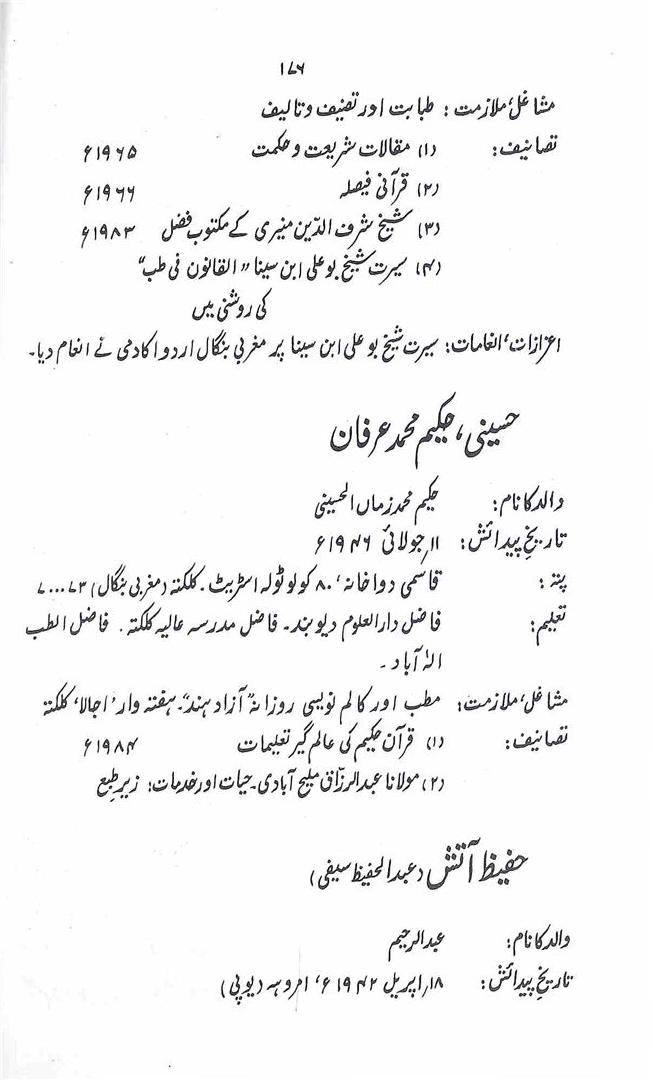 ۱۷۶
مشاغل، ملازمت: طبابت اور تصنیف و تالیف
تصانیف: (۱) مقالات شریعت و حکمت ۱۹۶۵ء
(۲) قرآنی فیصلہ ۱۹۶۶ء
(۳) شیخ شرف الدّین منیری کے مکتوب فضل ۱۹۸۳ء
(۴) سیرت شیخ بو علی ابن سینا "القانون فی طب"
کی روشنی میں
اعزازات، انعامات: سیرت شیخ بو علی ابن سینا پر مغربی بنگال اردو اکادمی نے انعام دیا۔
حسینی، حکیم محمد عرفان
والد کا نام: حکیم محمد زماں الحسینی
تاریخِ پیدائش: ۱۱ر جولائی ۱۹۴۶ء
پتہ: قاسمی دواخانہ، ۸۰ کولوٹولہ اسٹریٹ۔ کلکتہ (مغربی بنگال) ۷۰۰۰۷۳
تعلیم: فاضل دارالعلوم دیوبند۔ فاضل مدرسہ عالیہ کلکتہ۔ فاضل الطب
الہٰ آباد۔
مشاغل، ملازمت: مطب اور کالم نویسی روزانہ "آزاد ہند"۔ ہفتہ وار 'اجالا' کلکتہ
تصانیف: (۱) قرآن حکیم کی عالم گیر تعلیمات ۱۹۸۴ء
(۲) مولانا عبدالرزّاق ملیح آبادی۔ حیات اور خدمات: زیرِ طبع
حفیظ آتش (عبدالحفیظ سیفی)
والد کا نام: عبدالرحیم
تاریخِ پیدائش: ۱۸ر اپریل ۱۹۴۲ء، امروہہ (یوپی)